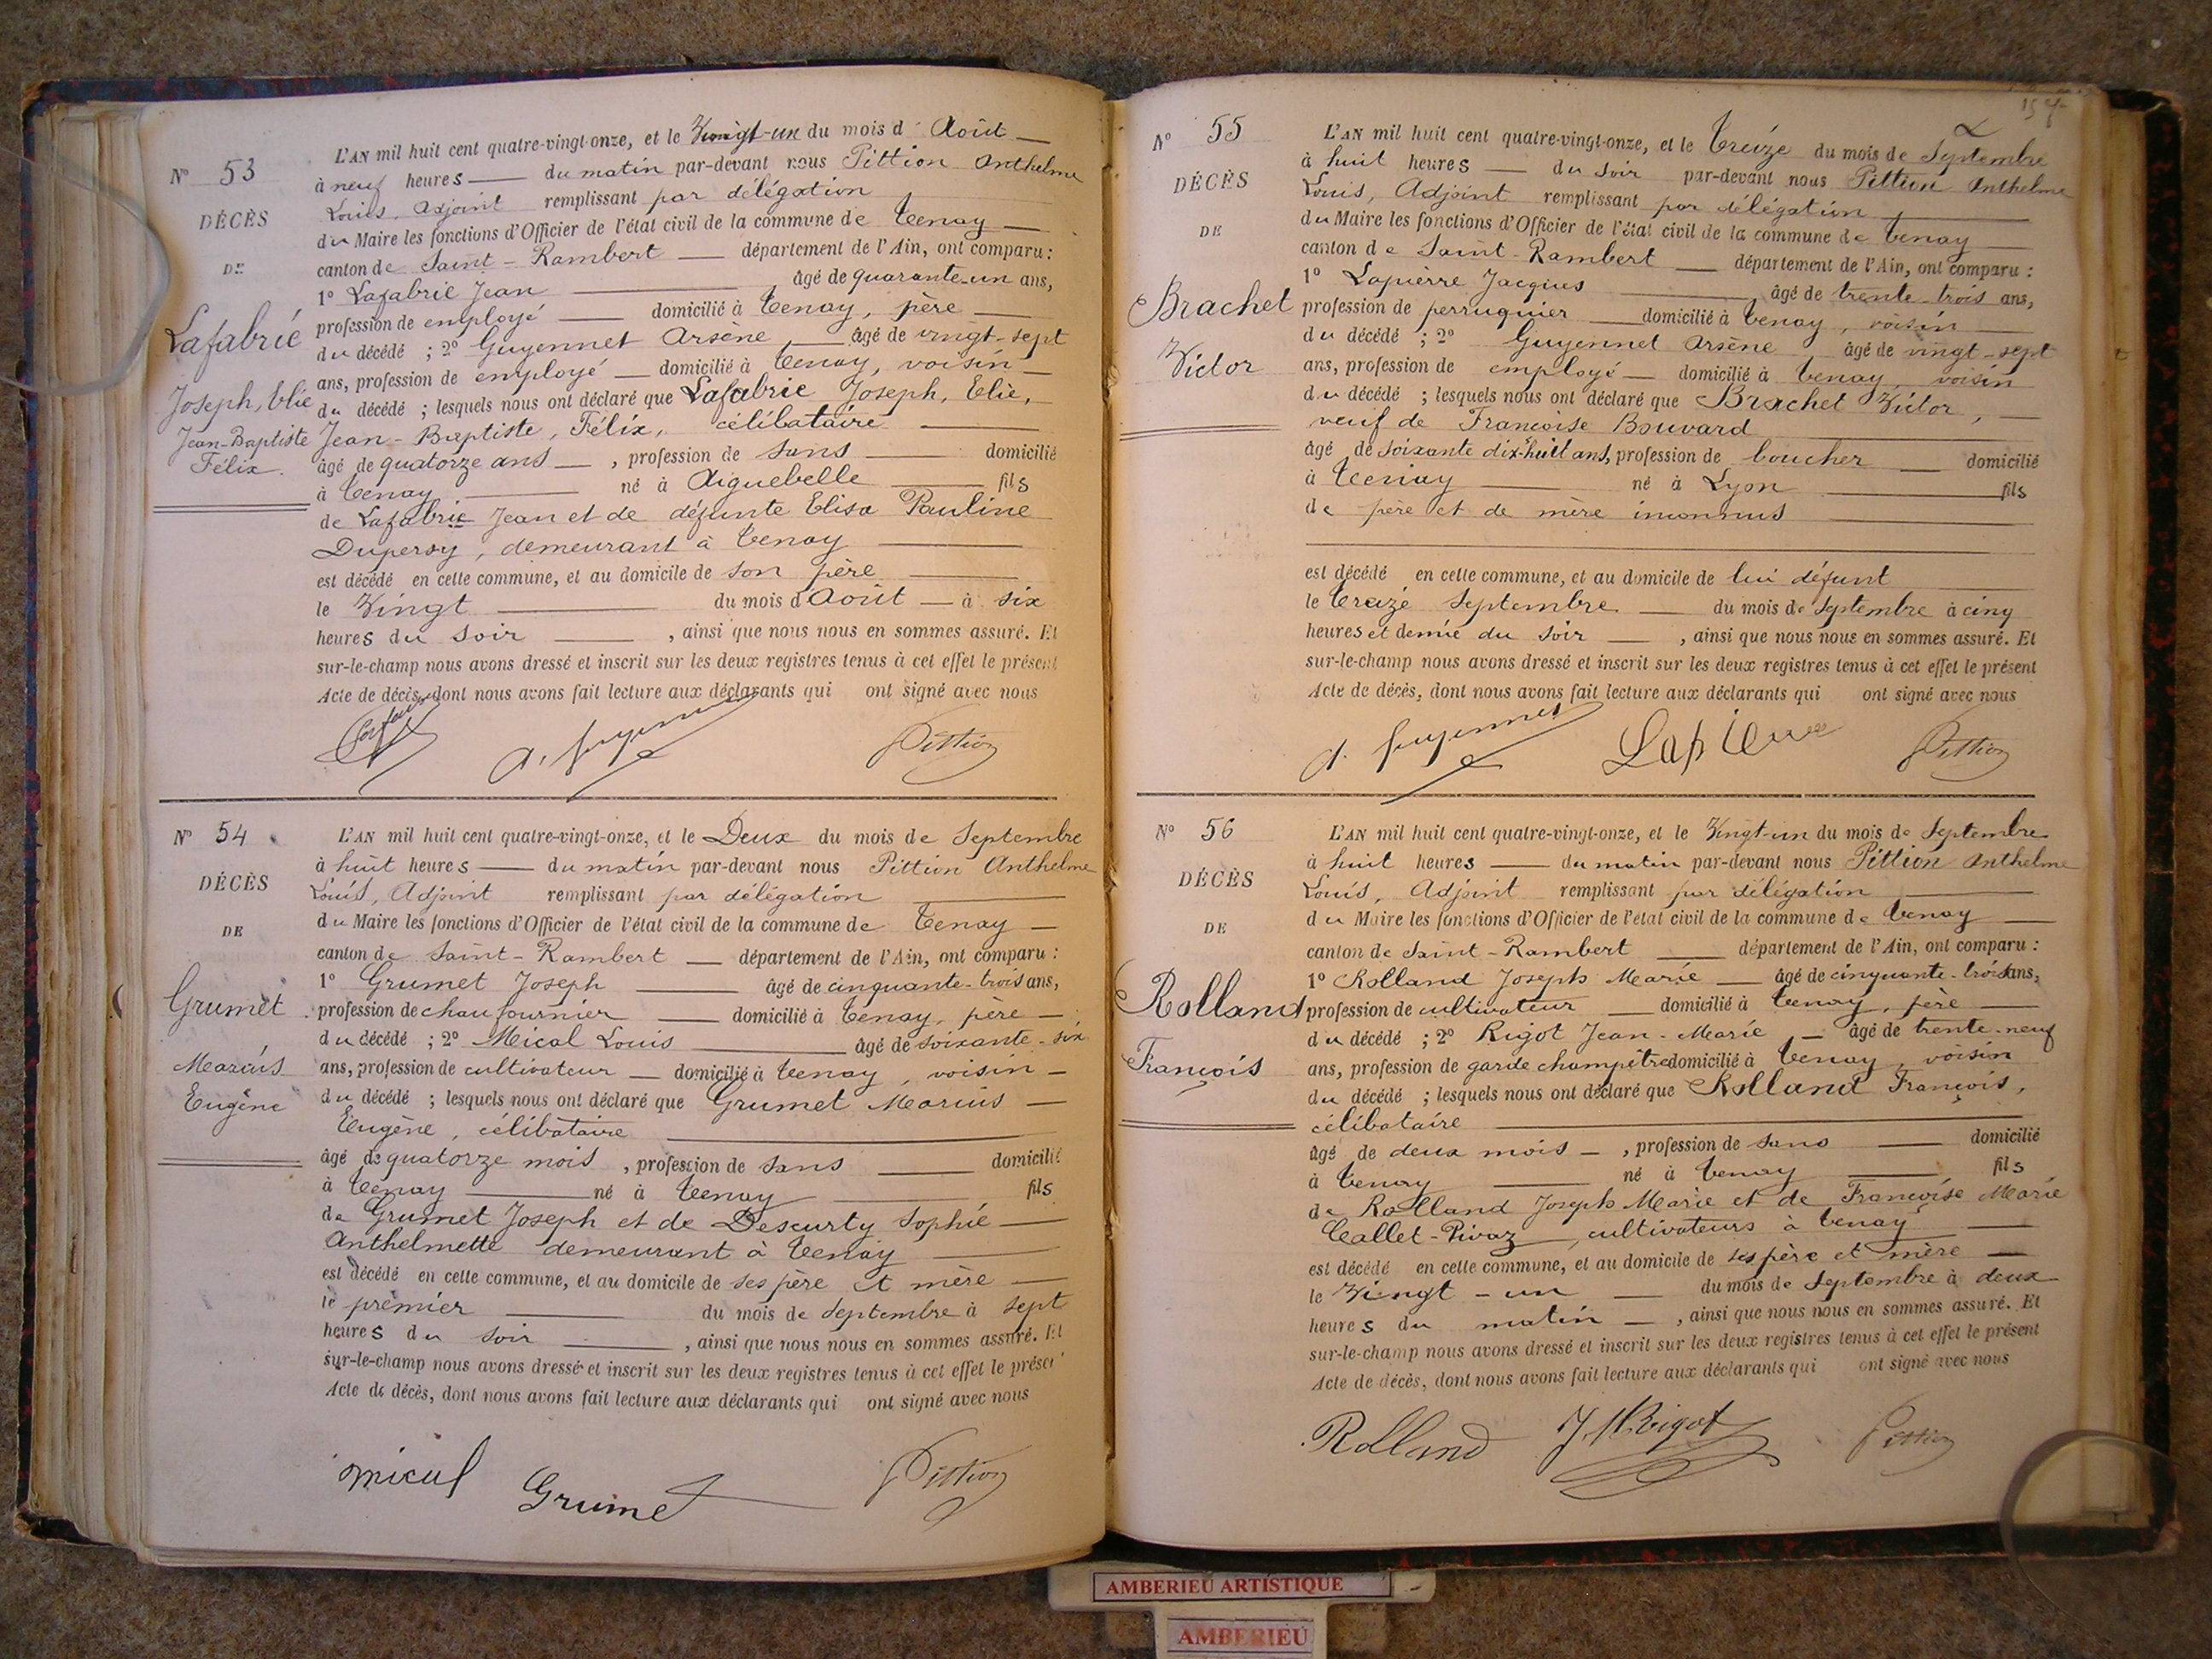 N° 53
DÉCÈS
DE
Lafabrie
Joseph, Elie
Jean-Baptiste
Félix.
L'AN mil huit cent quatre-vingt-onze, et le Vingt-un du mois d'Août
à neuf heures du matin par-devant nous Pittion Anthelme
Louis, Adjoint remplissant par délégation
du Maire les fonctions d'Officier de l'état civil de la commune de Tenay
canton de Saint-Rambert département de l'Ain, ont comparu :
1° Lafabrie Jean âgé de quarante-un ans,
profession de employé domicilié à Tenay, père
du décédé ; 2° Guyennet Arsène âgé de vingt-sept
ans, profession de employé domicilié à Tenay, voisin
du décédé ; lesquels nous ont déclaré que Lafabrie Joseph, Elie,
Jean-Baptiste, Félix, célibataire
âgé de quatorze ans, profession de sans domicilié
à Tenay né à Aiguebelle fils
de Lafabrie Jean et de défunte Elisa Pauline
Dupersy, demeurant à Tenay
est décédé en cette commune, et au domicile de son père
le Vingt du mois d'Août à six
heures du soir, ainsi que nous nous en sommes assuré. Et
sur-le-champ nous avons dressé et inscrit sur les deux registres tenus à cet effet le présent
Acte de décès, dont nous avons fait lecture aux déclarants qui ont signé avec nous
A. Guyennet Pittion
N° 54
DÉCÈS
DE
Grumet
Marius
Eugène
L'AN mil huit cent quatre-vingt-onze, et le Deux du mois de Septembre
à huit heures du matin par-devant nous Pittion Anthelme
Louis, Adjoint remplissant par délégation
du Maire les fonctions d'Officier de l'état civil de la commune de Tenay
canton de Saint-Rambert département de l'Ain, ont comparu :
1° Grumet Joseph âgé de cinquante-trois ans,
profession de chaufournier domicilié à Tenay, père
du décédé ; 2° Mical Louis âgé de soixante-six
ans, profession de cultivateur domicilié à Tenay, voisin
du décédé ; lesquels nous ont déclaré que Grumet Marius
Eugène, célibataire
âgé de quatorze mois, profession de sans domicilié
à Tenay né à Tenay fils
de Grumet Joseph et de Descurty Sophie
Anthelmette demeurant à Tenay
est décédé en cette commune, et au domicile de ses père et mère
le premier du mois de Septembre à sept
heures du soir, ainsi que nous nous en sommes assuré. Et
sur-le-champ nous avons dressé et inscrit sur les deux registres tenus à cet effet le présen
Acte de décès, dont nous avons fait lecture aux déclarants qui ont signé avec nous
Mical Grumet Pittion
N° 55
DÉCÈS
DE
Brachet
Victor
L'AN mil huit cent quatre-vingt-onze, et le Treize du mois de Septembre
à huit heures du soir par-devant nous Pittion Anthelme
Louis, Adjoint remplissant par délégation
du Maire les fonctions d'Officier de l'état civil de la commune de Tenay
canton de Saint-Rambert département de l'Ain, ont comparu :
1° Lapierre Jacques âgé de trente-trois ans,
profession de perruquier domicilié à Tenay, voisin
du décédé ; 2° Guyennet Arsène âgé de vingt-sept
ans, profession de employé domicilié à Tenay, voisin
du décédé ; lesquels nous ont déclaré que Brachet Victor,
veuf de Françoise Bouvard
âgé de soixante dix-huit ans, profession de boucher domicilié
à Tenay né à Lyon fils
de père et de mère inconnus
est décédé en cette commune, et au domicile de lui défunt
le treize Septembre du mois de Septembre à cinq
heures et demie du soir, ainsi que nous nous en sommes assuré. Et
sur-le-champ nous avons dressé et inscrit sur les deux registres tenus à cet effet le présent
Acte de décès, dont nous avons fait lecture aux déclarants qui ont signé avec nous
A. Guyennet Lapierre Pittion
N° 56
DÉCÈS
DE
Rolland
François
L'AN mil huit cent quatre-vingt-onze, et le Vingt-un du mois de Septembre
à huit heures du matin par-devant nous Pittion Anthelme
Louis, Adjoint remplissant par délégation
du Maire les fonctions d'Officier de l'état civil de la commune de Tenay
canton de Saint-Rambert département de l'Ain, ont comparu :
1° Rolland Joseph Marie âgé de cinquante-trois ans,
profession de cultivateur domicilié à Tenay, père
du décédé ; 2° Rigot Jean-Marie âgé de trente-neuf
ans, profession de garde champêtre domicilié à Tenay, voisin
du décédé ; lesquels nous ont déclaré que Rolland François,
célibataire
âgé de deux mois, profession de sans domicilié
à Tenay né à Tenay fils
de Rolland Joseph Marie et de Françoise Marie
Callet-Pivaz, cultivateurs à Tenay
est décédé en cette commune, et au domicile de ses père et mère
le Vingt-un du mois de Septembre à deux
heures du matin, ainsi que nous nous en sommes assuré. Et
sur-le-champ nous avons dressé et inscrit sur les deux registres tenus à cet effet le présent
Acte de décès, dont nous avons fait lecture aux déclarants qui ont signé avec nous
Rolland J. M. Rigot Pittion
AMBERIEU ARTISTIQUE
AMBERIEU